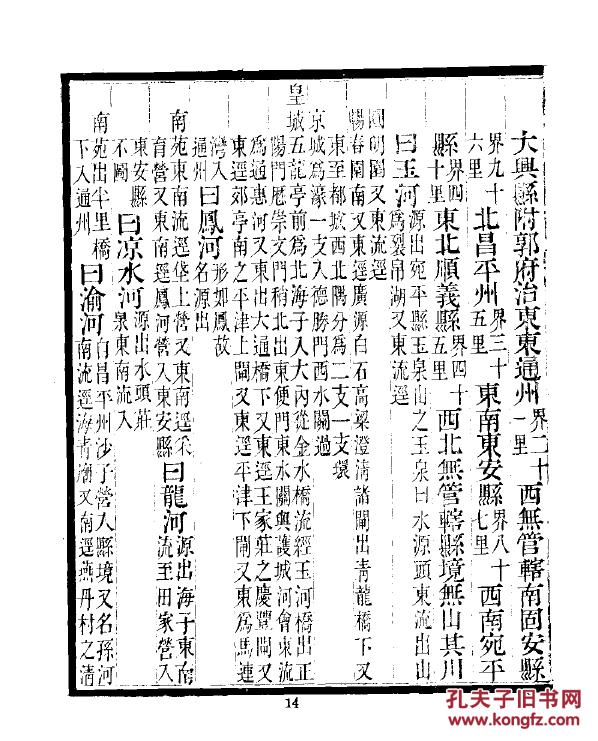 大興縣附郭府治東東通州界二十一里西無管轄南固安縣
界九十六里北昌平州界三十五里東南東安縣界八十七里西南宛平
縣界四十里東北順義縣界四十五里西北無管轄縣境無山其川
曰玉河源出宛平縣玉泉山之玉泉曰水源頭東流出山為裂帛湖又東流逕
圓明園又東流逕
暢春園南又東逕廣源白石高粱澄清諸閘出青龍橋下又
東至都城西北隅分為二支一支環
京城為濠一支入德勝門西水關過
皇城五龍亭前為北海子入大內從金水橋流經玉河橋出正
陽門歷崇文門稍北出東便門東水關與護城河會東流
為通惠河又東出大通橋下又東逕王家莊之慶豐閘又
東逕郊亭南之平津上閘又東逕平津下閘又東為馬連
灣入通州曰鳳河形如鳳故名源出
南苑東南流逕垡上營又東南逕采
育營又東南逕鳳河營入東安縣曰龍河源出海子東南流至田家營入
東安縣不圖曰凉水河源出水頭莊泉東南流入
南苑出半里橋下入通州曰渝河自昌平州沙子營入縣境又名孫河南流逕海青廟又南逕燕丹村之清
14
孔夫子旧书网
www.kongfz.com